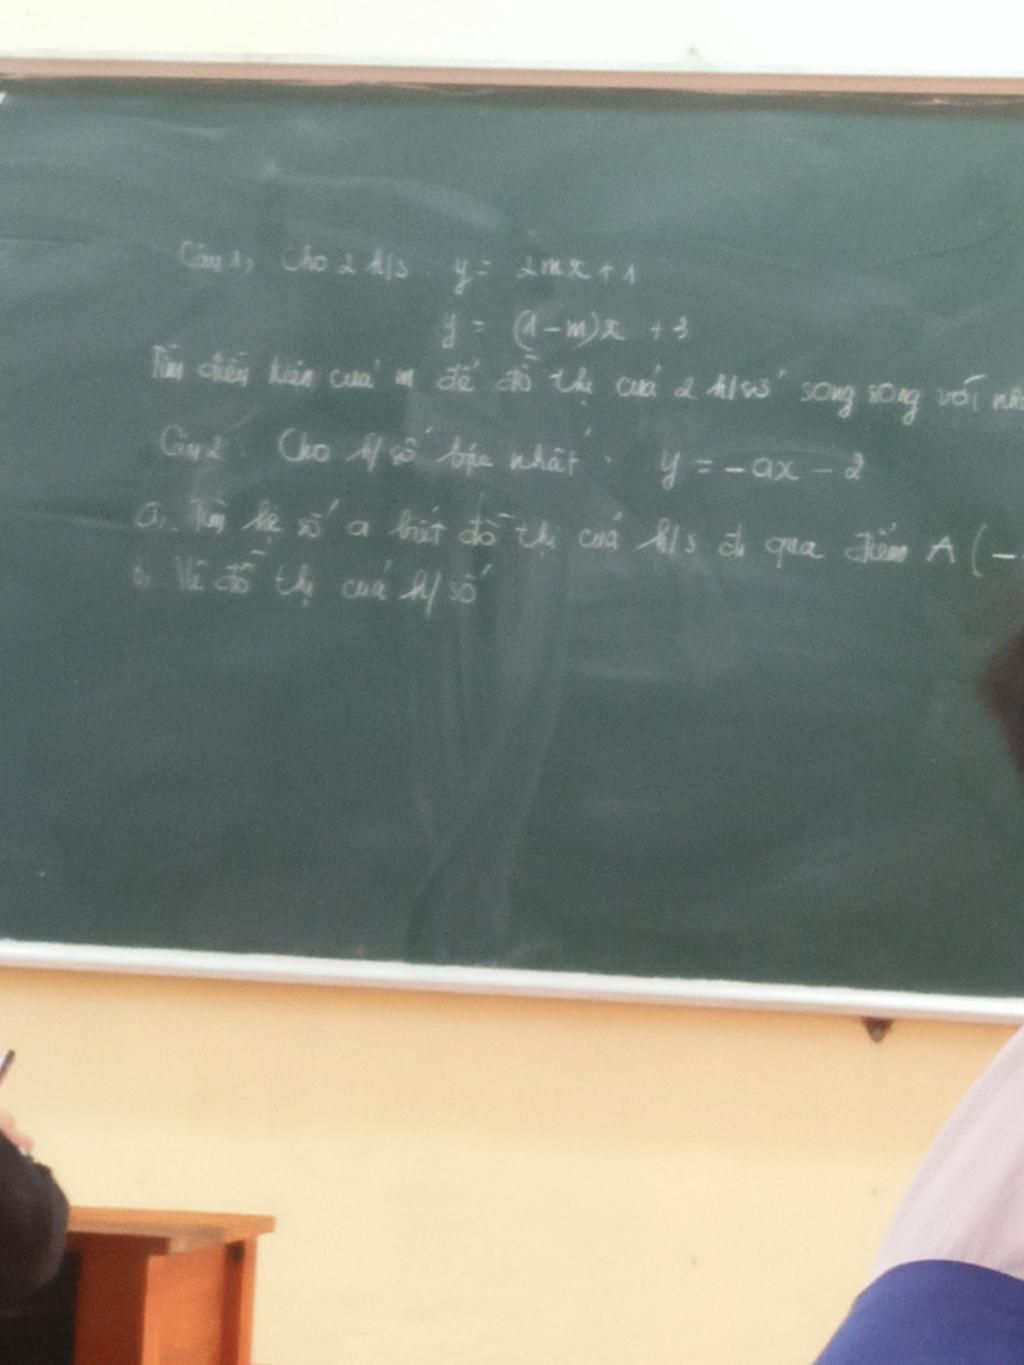 Câu 1, Cho 2 h/s y = 2mx + 1
y = (1-m)x + 3
Tìm điều kiện của m để đồ thị của 2 h/số song song với
Câu 2: Cho h/số bậc nhất: y = -ax - 2
a, Tìm hệ số a biết đồ thị của h/s đi qua điểm A (-
b, Vẽ đồ thị của h/số